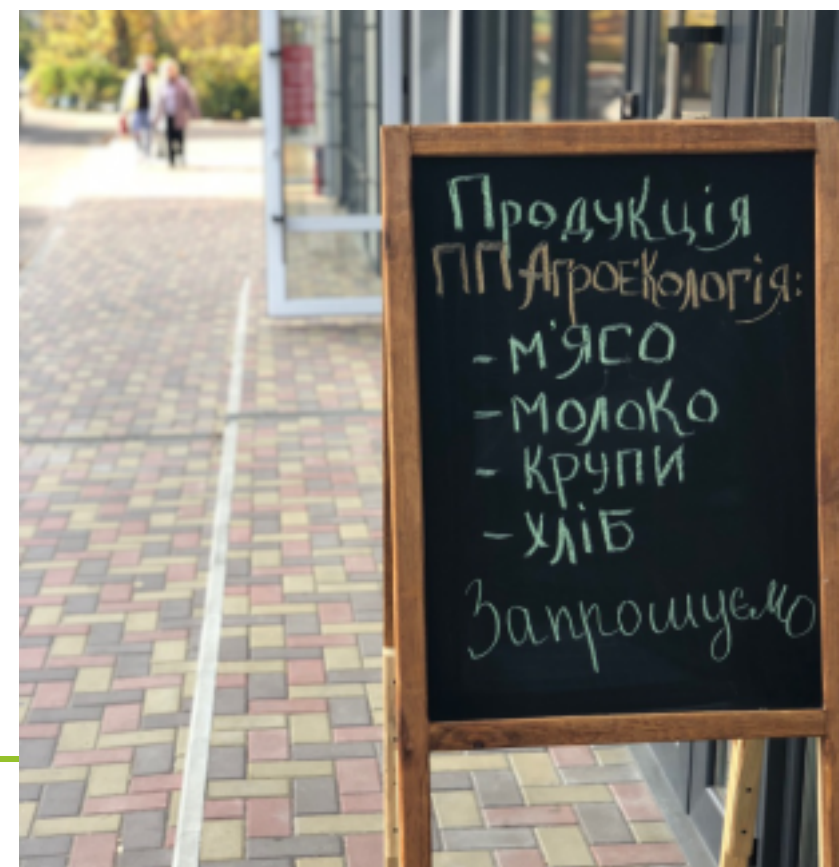 Продукція
ПП Агроекологія:
- м'ясо
- молоко
- крупи
- хліб
Запрошуємо